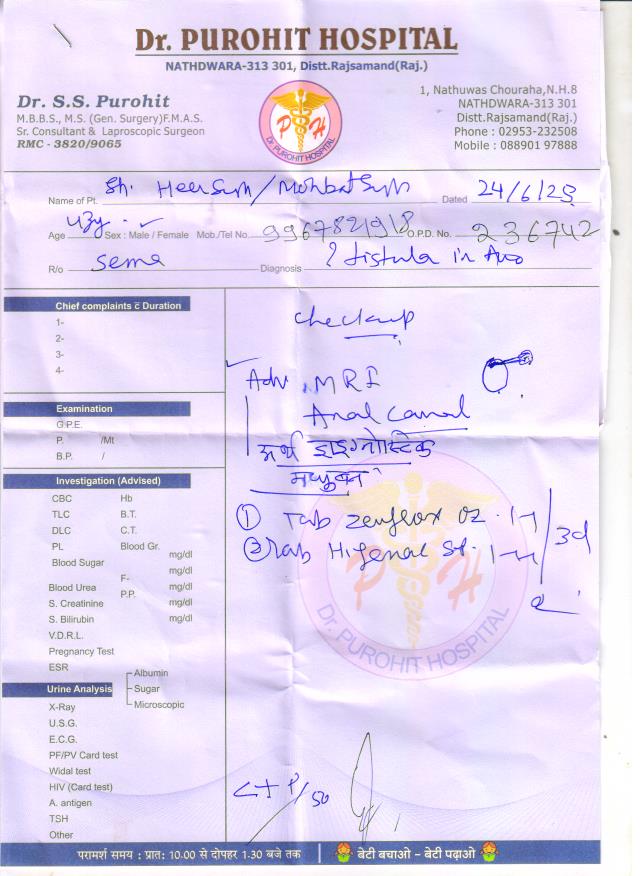 Dr. PUROHIT HOSPITAL
NATHDWARA-313 301, Distt.Rajsamand(Raj.)
Dr. S.S. Purohit
M.B.B.S., M.S. (Gen. Surgery)F.M.A.S.
Sr. Consultant & Laproscopic Surgeon
RMC - 3820/9065
P H
Dr. PUROHIT HOSPITAL
1, Nathuwas Chouraha,N.H.8
NATHDWARA-313 301
Distt.Rajsamand(Raj.)
Phone : 02953-232508
Mobile : 088901 97888
Name of Pt. Sh. Heer Singh/Mohbat Singh Dated 24/6/23
Age Sex : Male / Female Mob./Tel No. O.P.D. No. 236742
R/o Sema Diagnosis ? fistula in Ano
Chief complaints c̄ Duration
1-
2-
3-
4-
Examination
G.P.E.
P. /Mt
B.P. /
Investigation (Advised)
CBC Hb
TLC B.T.
DLC C.T.
PL Blood Gr.
Blood Sugar mg/dl
F- mg/dl
Blood Urea P.P. mg/dl
S. Creatinine mg/dl
S. Bilirubin mg/dl
V.D.R.L.
Pregnancy Test
ESR
Urine Analysis
Albumin
Sugar
Microscopic
X-Ray
U.S.G.
E.C.G.
PF/PV Card test
Widal test
HIV (Card test)
A. antigen
TSH
Other
Checkup
Adv. MRI
Anal Canal
अर्थ डाइग्नोस्टिक
मधुबन
① Tab Zenflox OZ 1-1
② Tab Hifenac 1-1
3d
P H
Dr. PUROHIT HOSPITAL
परामर्श समय : प्रातः 10.00 से दोपहर 1.30 बजे तक
बेटी बचाओ - बेटी पढ़ाओ